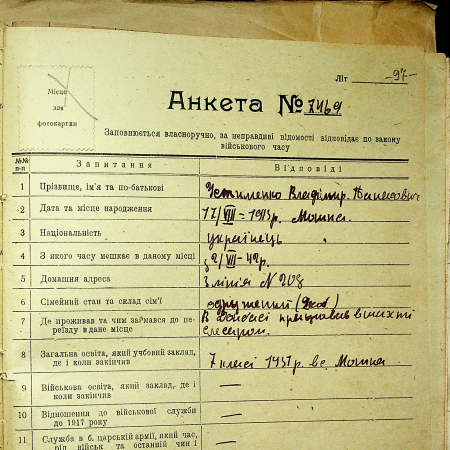 Місце
для
фотокартки
Літ -97-
Анкета № 7469
Заповнюється власноручно, за неправдиві відомості відповідає по закону
військового часу
№№ п-п Запитання Відповіді
1 Прізвище, ім'я та по-батькові Устименко Владімір
2 Дата та місце народження 17/VIII – 1913 р.
3 Національність українець
4 З якого часу мешкає в даному місці з 2/VIII - 42 р.
5 Домашня адреса 3 лінія N 208
6 Сімейний стан та склад сім'ї одружений
7 Де проживав та чим займався до пе-
реїзду в дане місце В Донбасі працював в шахті
слесаром.
8 Загальна освіта, який учбовий заклад,
де і коли закінчив 7 класі 1931 р.
9 Військова освіта, який заклад, де і
коли закінчив —
10 Відношення до військової служби
до 1917 року —
11 Служба в б. царській армії, який час,
рід військ та останній чин і —